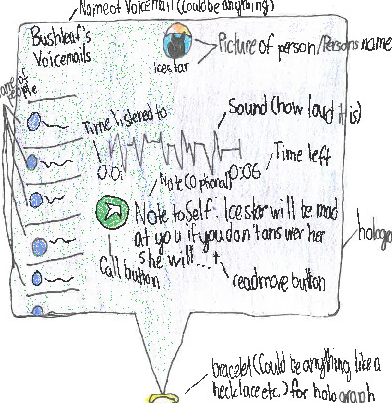 Name of Voicemail (Could be anything)
Bushleaf's
Voicemails
Picture of person/Persons name
Icestar
of
people
Time listened to
Sound (how loud it is)
0:01
0:06
Time left
Note (Optional)
Note to Self: Icestar will be mad
at you if you don't answer her
she will...
Call button
readmore button
bracelet (Could be anything like a
necklace etc.) for holograph